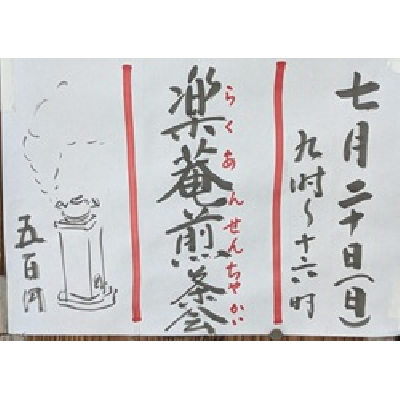 七月二十日(日)
九時~十六時
楽菴煎茶会
らくあんせんちゃかい
五百円